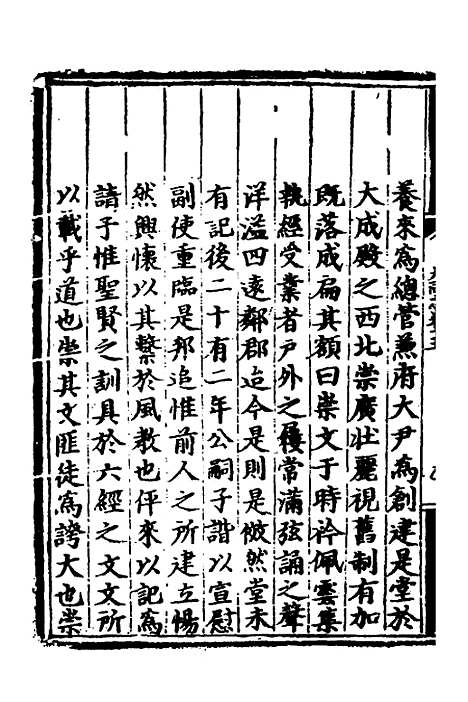 養來為總管兼府大尹為創建是堂於
大成殿之西北崇廣壯麗視舊制有加
既落成扁其額曰崇文于時衿佩雲集
執經受業者戶外之屨常滿弦誦之聲
洋溢四遠鄰郡迨今是則是傚然堂未
有記後二十有二年公嗣子諧以宣慰
副使重臨是邦追惟前人之所建立惕
然興懷以其繫於風教也伻來以記為
請予惟聖賢之訓具於六經之文文所
以載乎道也崇其文匪徒為誇大也崇